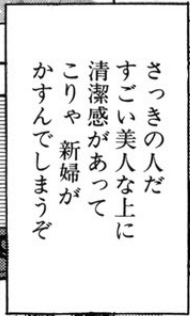 さっきの人だ
すごい美人な上に
清潔感があって
こりゃ 新婦が
かすんでしまうぞ